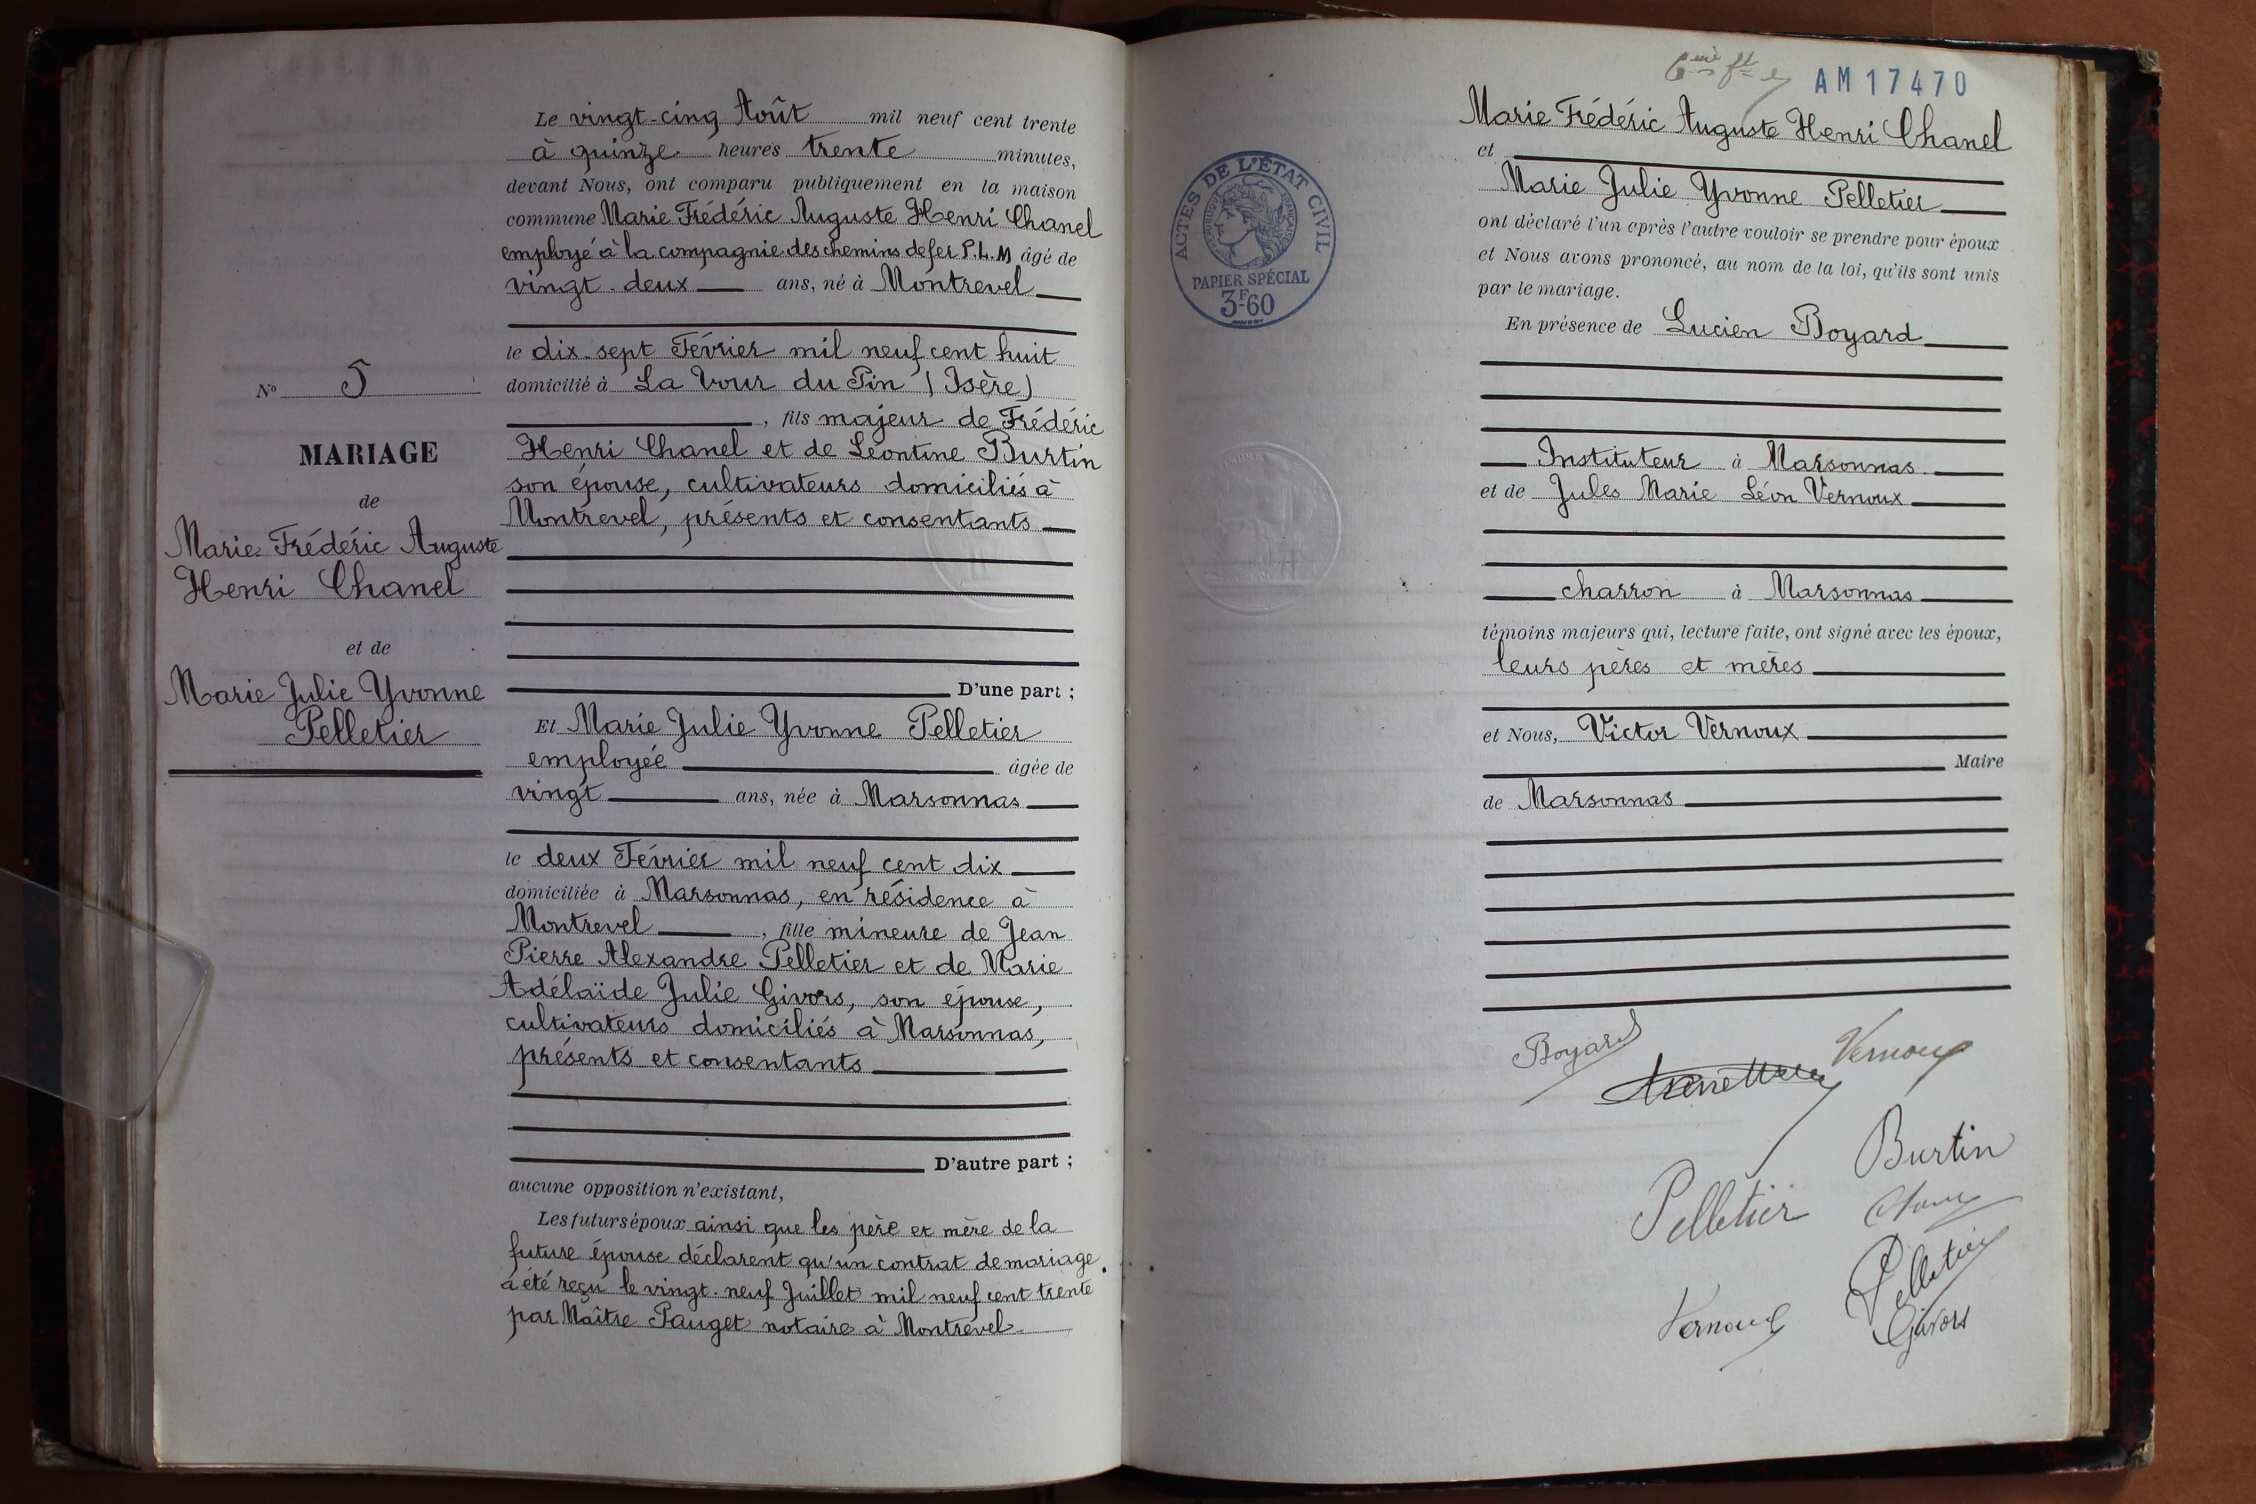 Le vingt-cinq Août mil neuf cent trente
à quinze heures trente minutes,
devant Nous, ont comparu publiquement en la maison
commune Marie Frédéric Auguste Henri Chanel
employé à la compagnie des chemins de fer P.L.M âgé de
vingt-deux ans, né à Montrevel
le dix-sept Février mil neuf cent huit
domicilié à La Tour du Pin (Isère)
, fils majeur de Frédéric
Henri Chanel et de Léontine Burtin
son épouse, cultivateurs domiciliés à
Montrevel, présents et consentants
D'une part ;
Et Marie Julie Yvonne Pelletier
employée âgée de
vingt ans, née à Marsonnas
le deux Février mil neuf cent dix
domiciliée à Marsonnas, en résidence à
Montrevel , fille mineure de Jean
Pierre Alexandre Pelletier et de Marie
Adélaïde Julie Givors, son épouse,
cultivateurs domiciliés à Marsonnas,
présents et consentants
D'autre part ;
aucune opposition n'existant,
Les futurs époux ainsi que les père et mère de la
future épouse déclarent qu'un contrat de mariage
a été reçu le vingt-neuf Juillet mil neuf cent trente
par Maître Pauget notaire à Montrevel.
N° 5
MARIAGE
de
Marie Frédéric Auguste
Henri Chanel
et de
Marie Julie Yvonne
Pelletier
AM 17470
ACTES DE L'ÉTAT CIVIL
PAPIER SPÉCIAL
3F60
Marie Frédéric Auguste Henri Chanel
et
Marie Julie Yvonne Pelletier
ont déclaré l'un après l'autre vouloir se prendre pour époux
et Nous avons prononcé, au nom de la loi, qu'ils sont unis
par le mariage.
En présence de Lucien Boyard
Instituteur à Marsonnas
et de Jules Marie Léon Vernoux
charron à Marsonnas
témoins majeurs qui, lecture faite, ont signé avec les époux,
leurs pères et mères
et Nous, Victor Vernoux
Maire
de Marsonnas
Boyard
Vernoux
Burtin
Pelletier
Pelletier
Vernoux
Givors